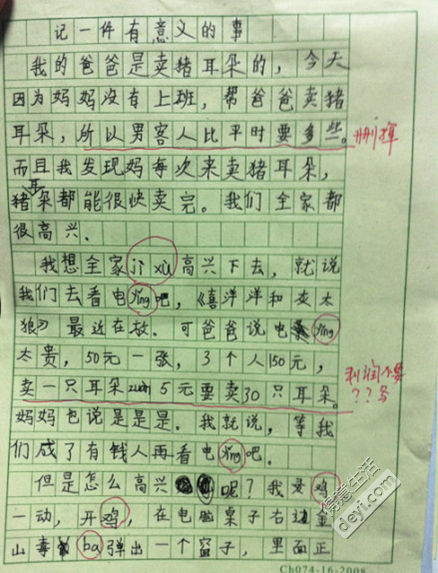 记一件有意义的事
我的爸爸是卖猪耳朵的，今天
因为妈妈没有上班，帮爸爸卖猪
耳朵，所以男客人比平时要多些。
删掉
而且我发现妈每次来卖猪耳朵，
猪耳朵都能很快卖完。我们全家都
很高兴．
我想全家jì xù高兴下去，就说
我们去看电yǐng吧，《喜洋洋和灰太
狼》最近在放．可爸爸说电yǐng
太贵，50元一张，3个人150元，
卖一只耳朵zuàn5元要卖30只耳朵。
利润不要
？？多
妈妈也说是是是．我就说，等我
们成了有钱人再看电yǐng吧．
但是怎么高兴呢？我灵鸡
一动，开鸡，在电脑桌子右边金
山毒bà弹出一个窗子，里面正
得意生活
deyi.com
Ch074-16-2008